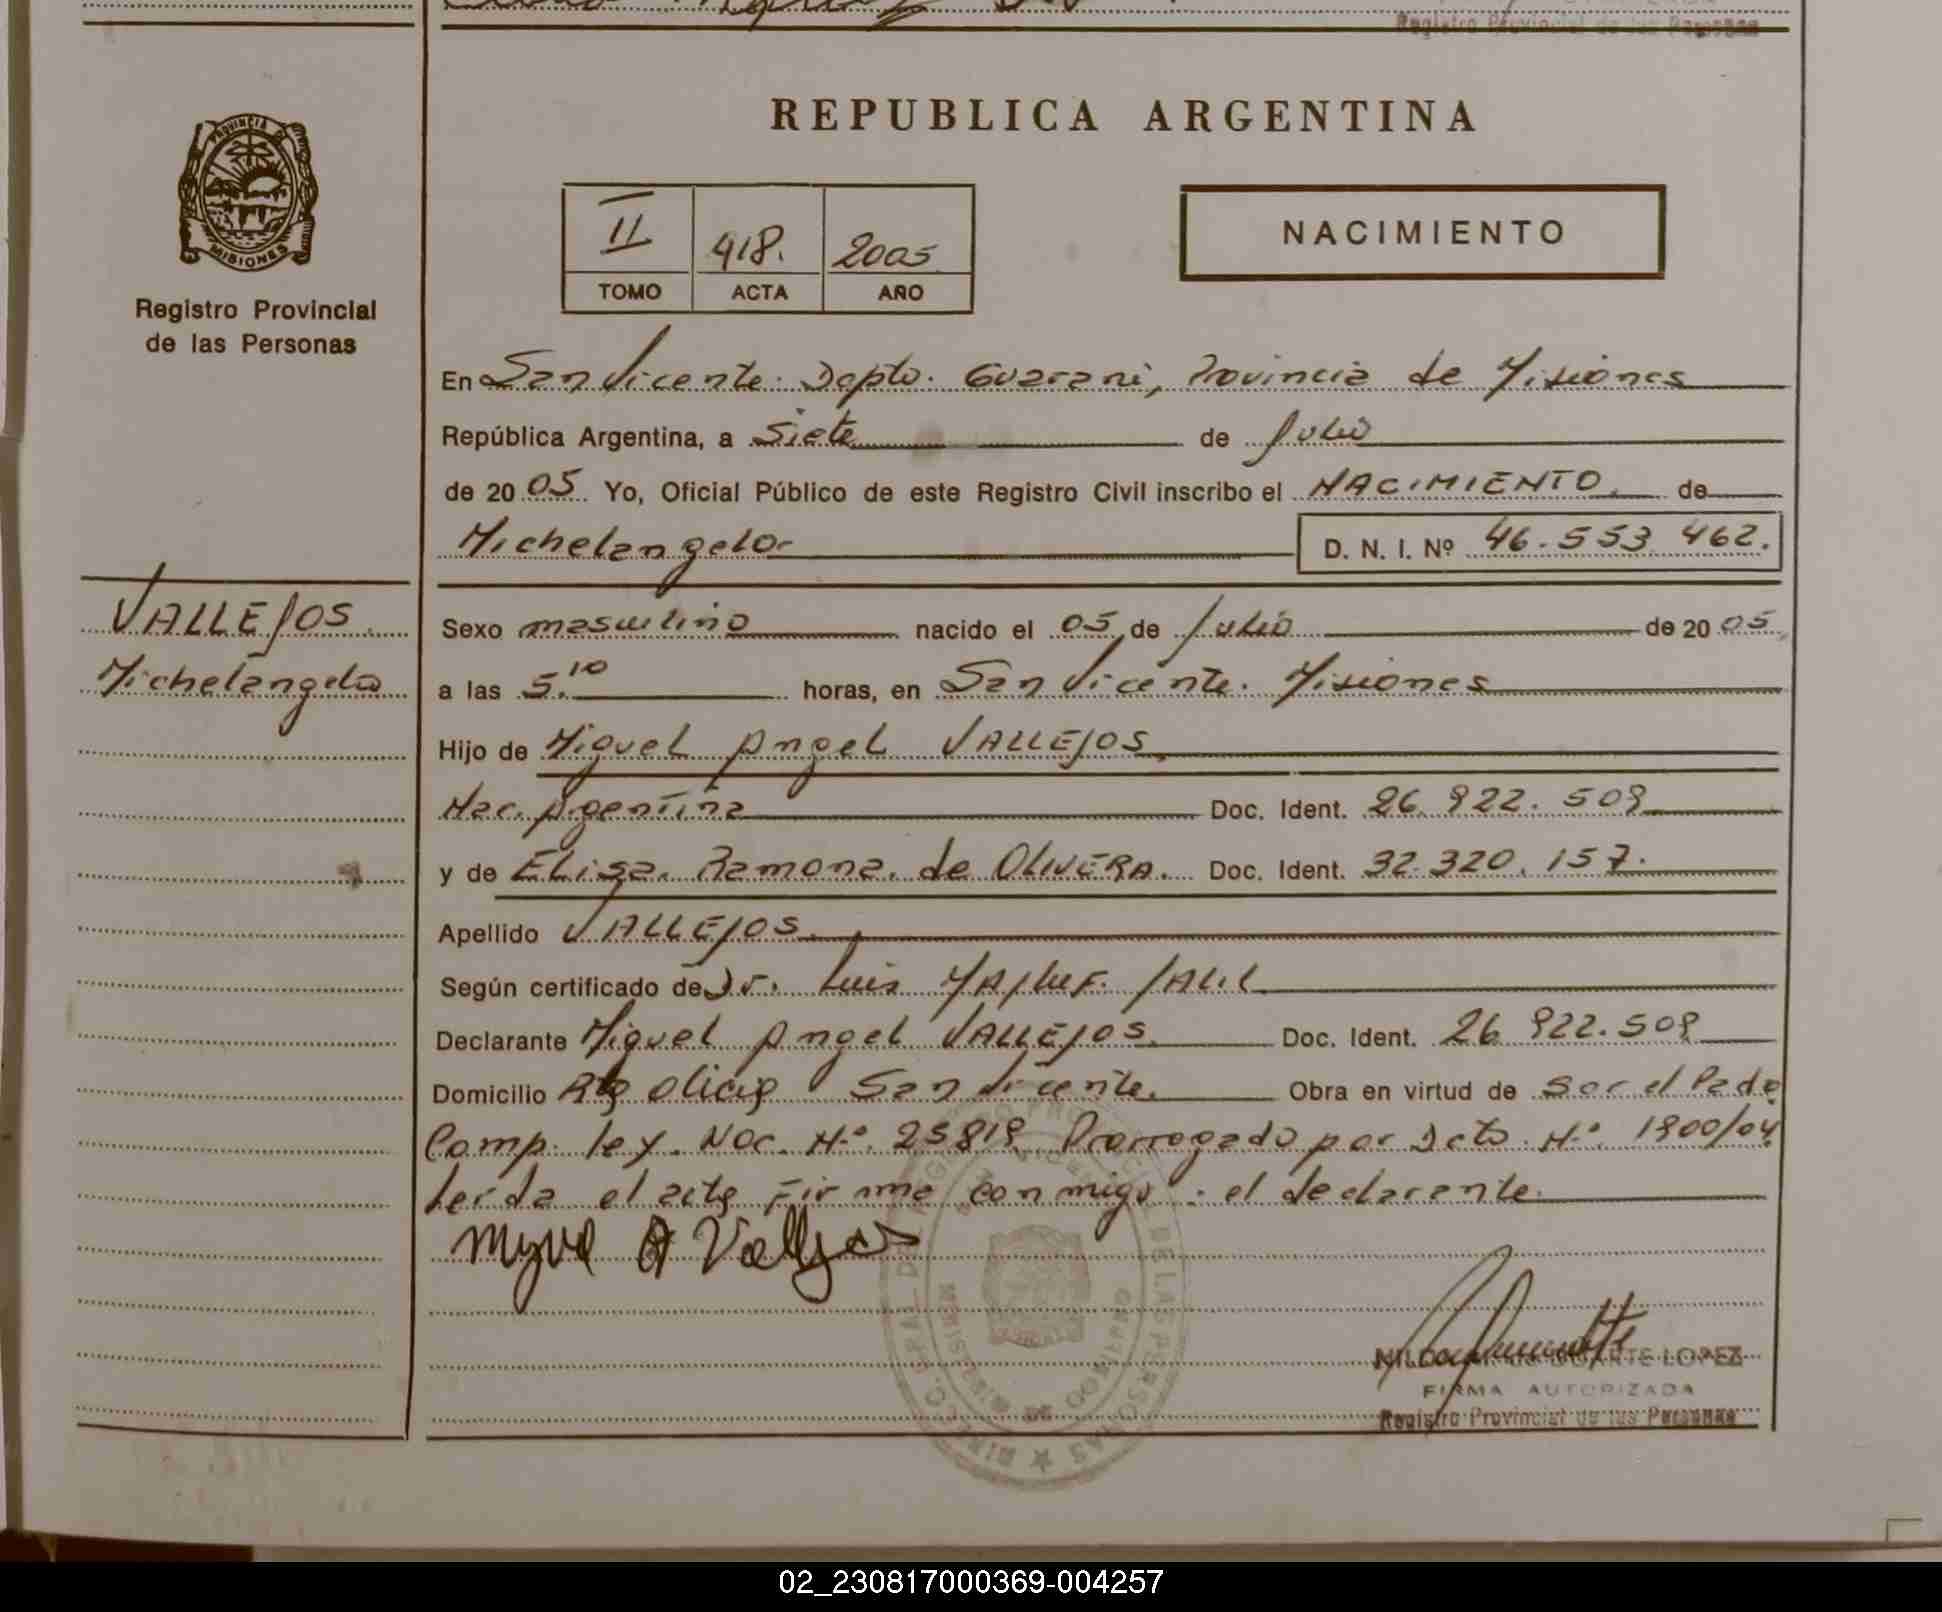 Registro Provincial de las Personas
REPUBLICA ARGENTINA
PROVINCIA DE
MISIONES
Registro Provincial
de las Personas
II 418. 2005
TOMO ACTA AÑO
NACIMIENTO
En San Vicente. Dopto. Guarani, Provincia de Misiones
República Argentina, a Siete de Julio
de 20 05 Yo, Oficial Público de este Registro Civil inscribo el NACIMIENTO de
Michelangelo D. N. I. Nº 46.553.462.
VALLEJOS
Michelangelo
Sexo masculino nacido el 05 de Julio de 20 05
a las 5.10 horas, en San Vicente. Misiones
Hijo de Miguel Angel VALLEJOS
Nac. Argentina Doc. Ident. 26.922.509
y de Elisa. Ramona. de OLIVERA. Doc. Ident. 32.320.157.
Apellido VALLEJOS
Según certificado de Dr. Luis JALIL
Declarante Miguel Angel VALLEJOS Doc. Ident. 26.922.509
Domicilio San Vicente. Obra en virtud de Ser el Padre
Comp. ley. Nac. Nº. 25819 Prorrogado por Dcto. Nº. 1900/04
Leida el acta Firma conmigo. el declarante.
Miguel A Vallejos
DUARTE LOPEZ
FIRMA AUTORIZADA
Registro Provincial de las Personas
02_230817000369-004257